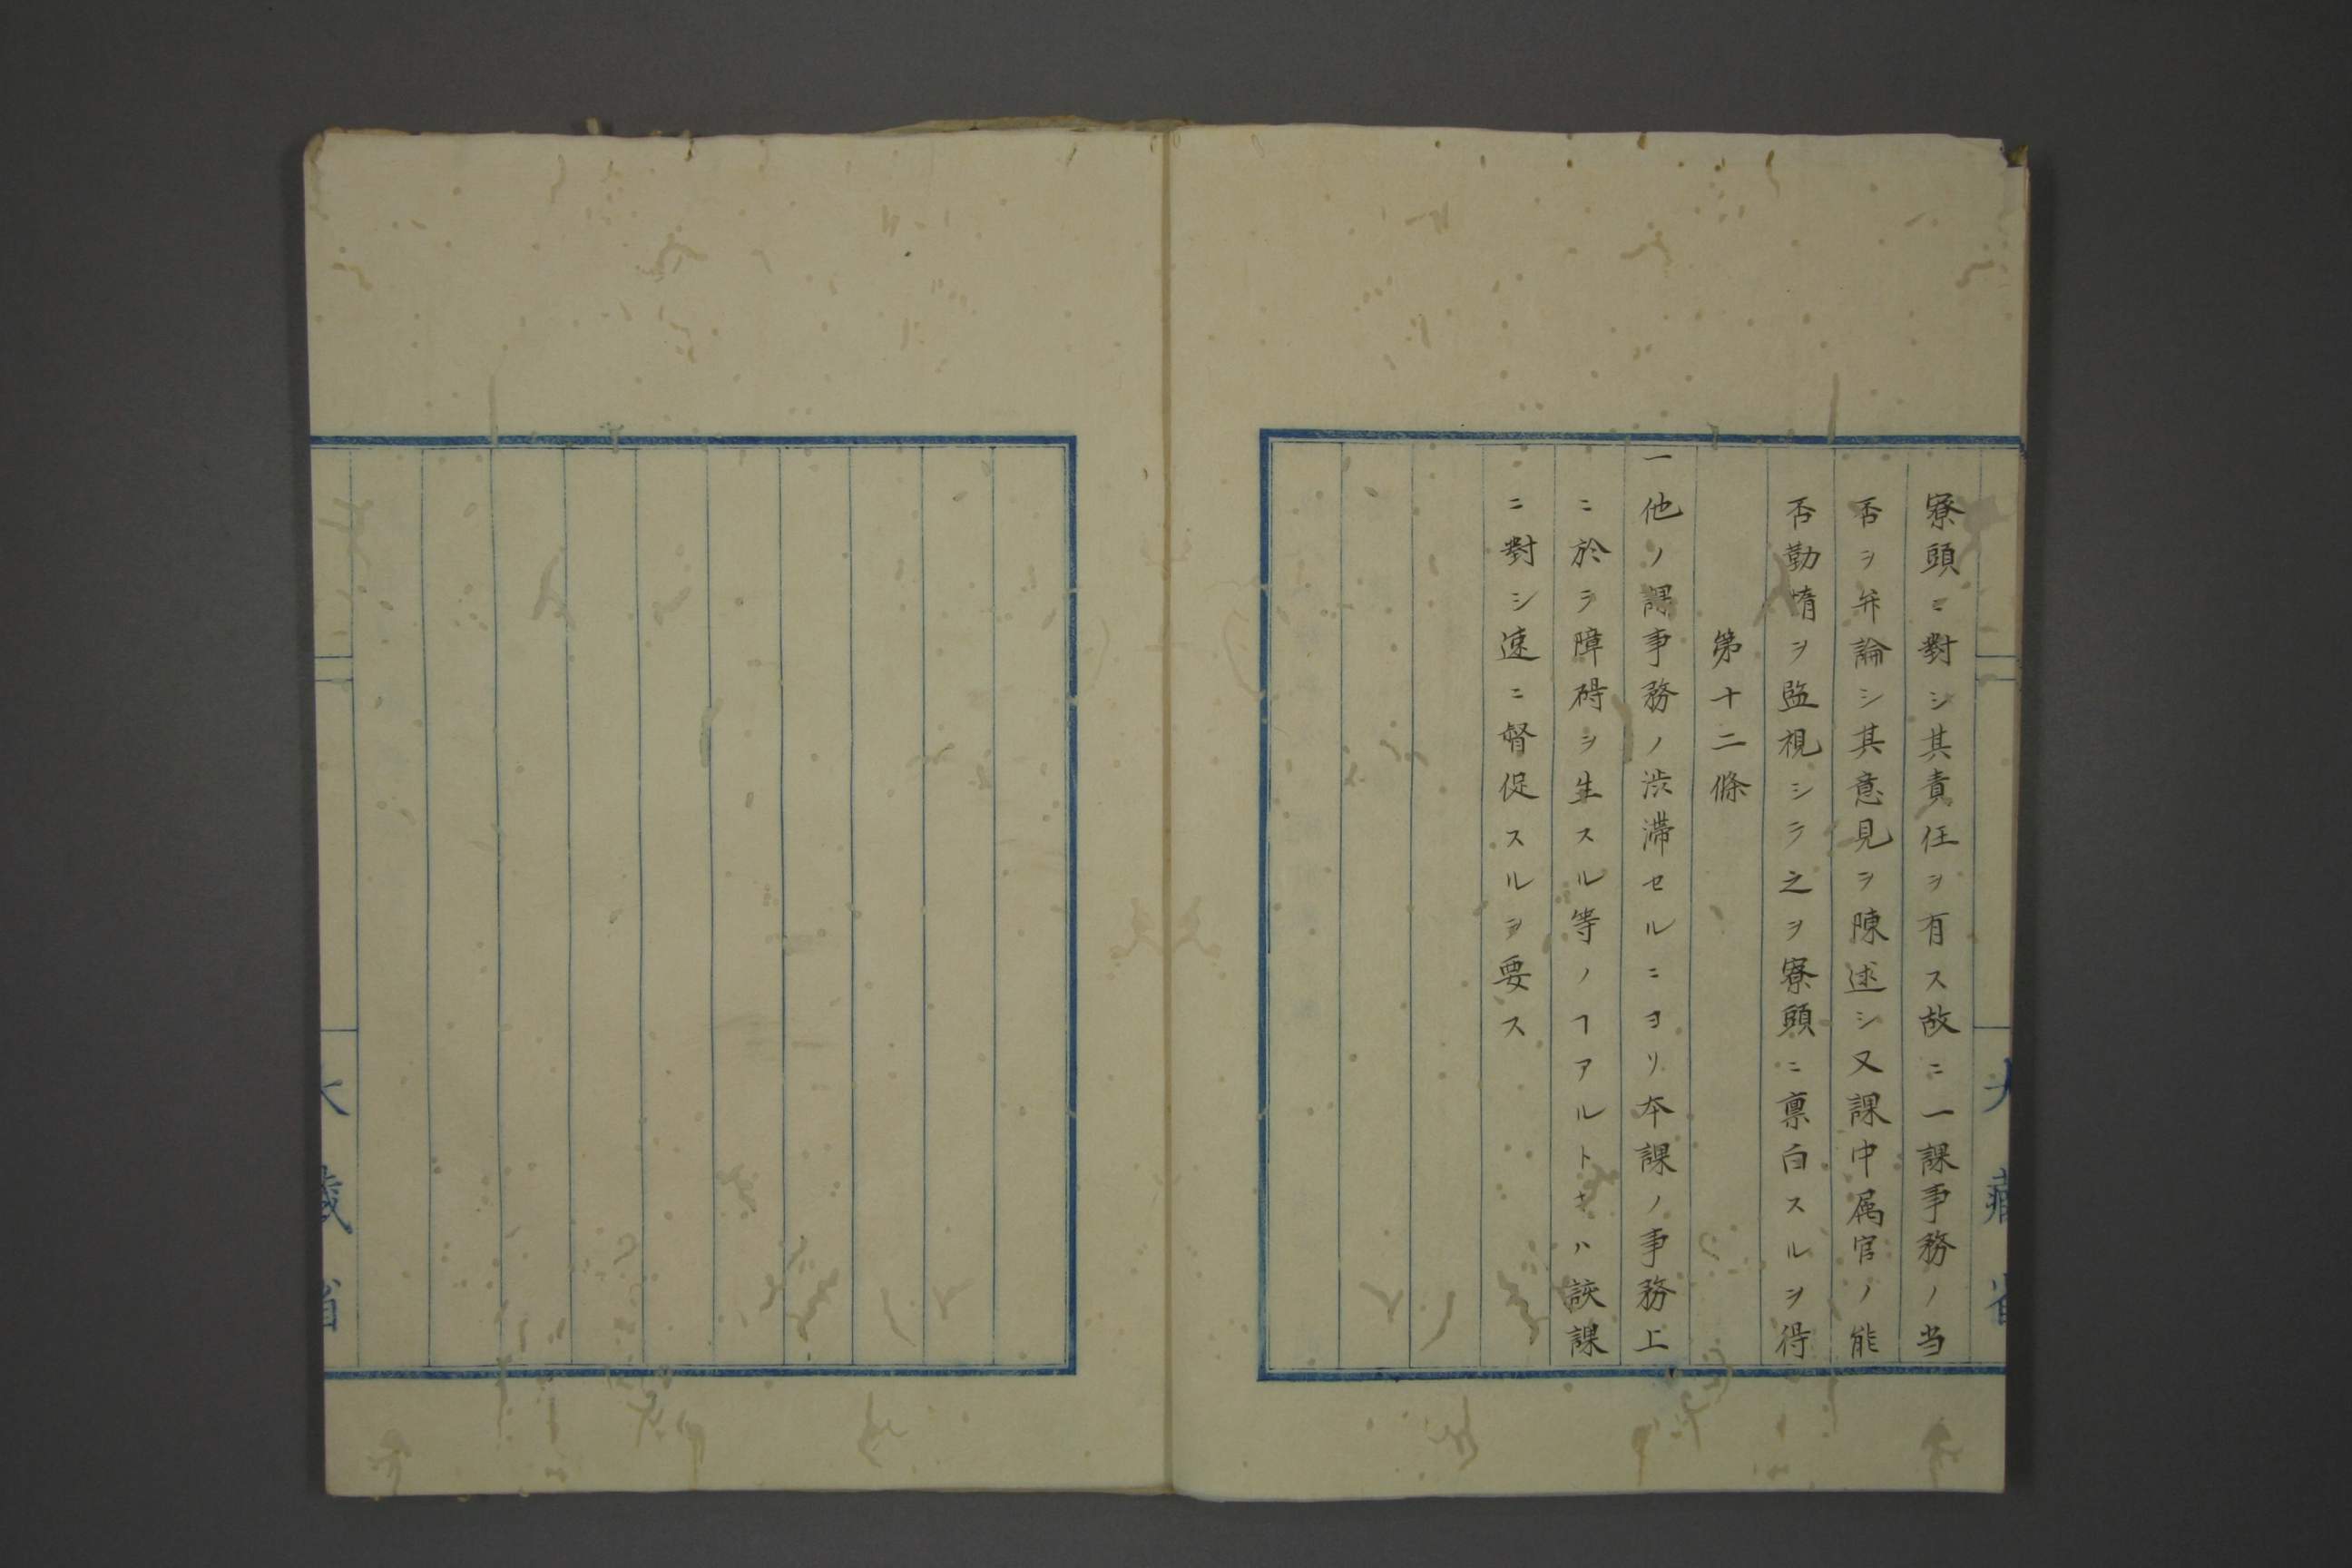 寮頭ニ對シ其責任ヲ有ス故ニ一課事務ノ当
否ヲ弁論シ其意見ヲ陳述シ又課中属官ノ能
否勤惰ヲ監視シテ之ヲ寮頭ニ禀白スルヲ得
第十二條
一他ノ課事務ノ渋滞セルニヨリ本課ノ事務上
ニ於テ障碍ヲ生スル等ノヿアルトキハ該課
ニ對シ速ニ督促スルヲ要ス
大藏省
大藏省